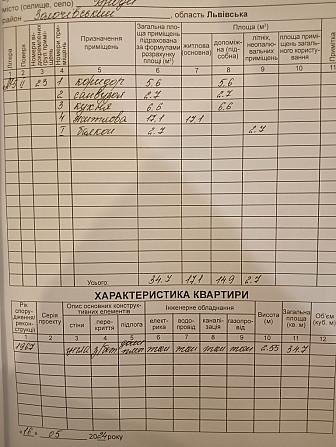 місто (селище, село)
район Золочівський , область Львівська
Літера
Поверх
Призначення приміщень
Загальна площа приміщень підрахована за формулами розрахунку площ (м²)
Площа (м²)
житлова (основна)
допоміжна (підсобна)
літніх, неопалювальних приміщень
площа приміщень загального користування
Примітка
1 2 3 4 5 6 7 8 9 10 11
II 23 1 коридор 5.6 5.6
2 санвузол 2.7 2.7
3 кухня 6.6 6.6
4 житлова 17.1 17.1
I балкон 2.7 2.7
Усього: 34.7 17.1 14.9 2.7
ХАРАКТЕРИСТИКА КВАРТИРИ
Рік спорудження/реконструкції
Серія проекту
Опис основних конструктивних елементів
стіни
перекриття
підлога
Інженерне обладнання
електрика
водопровід
каналізація
газопровід
Висота (м)
Загальна площа (кв. м)
Об'єм (куб. м)
2 3 4 5 6 7 8 9 10 11 12
1987 цегла з/бет так так так так 2.55 34.7
"16" 05 20 року